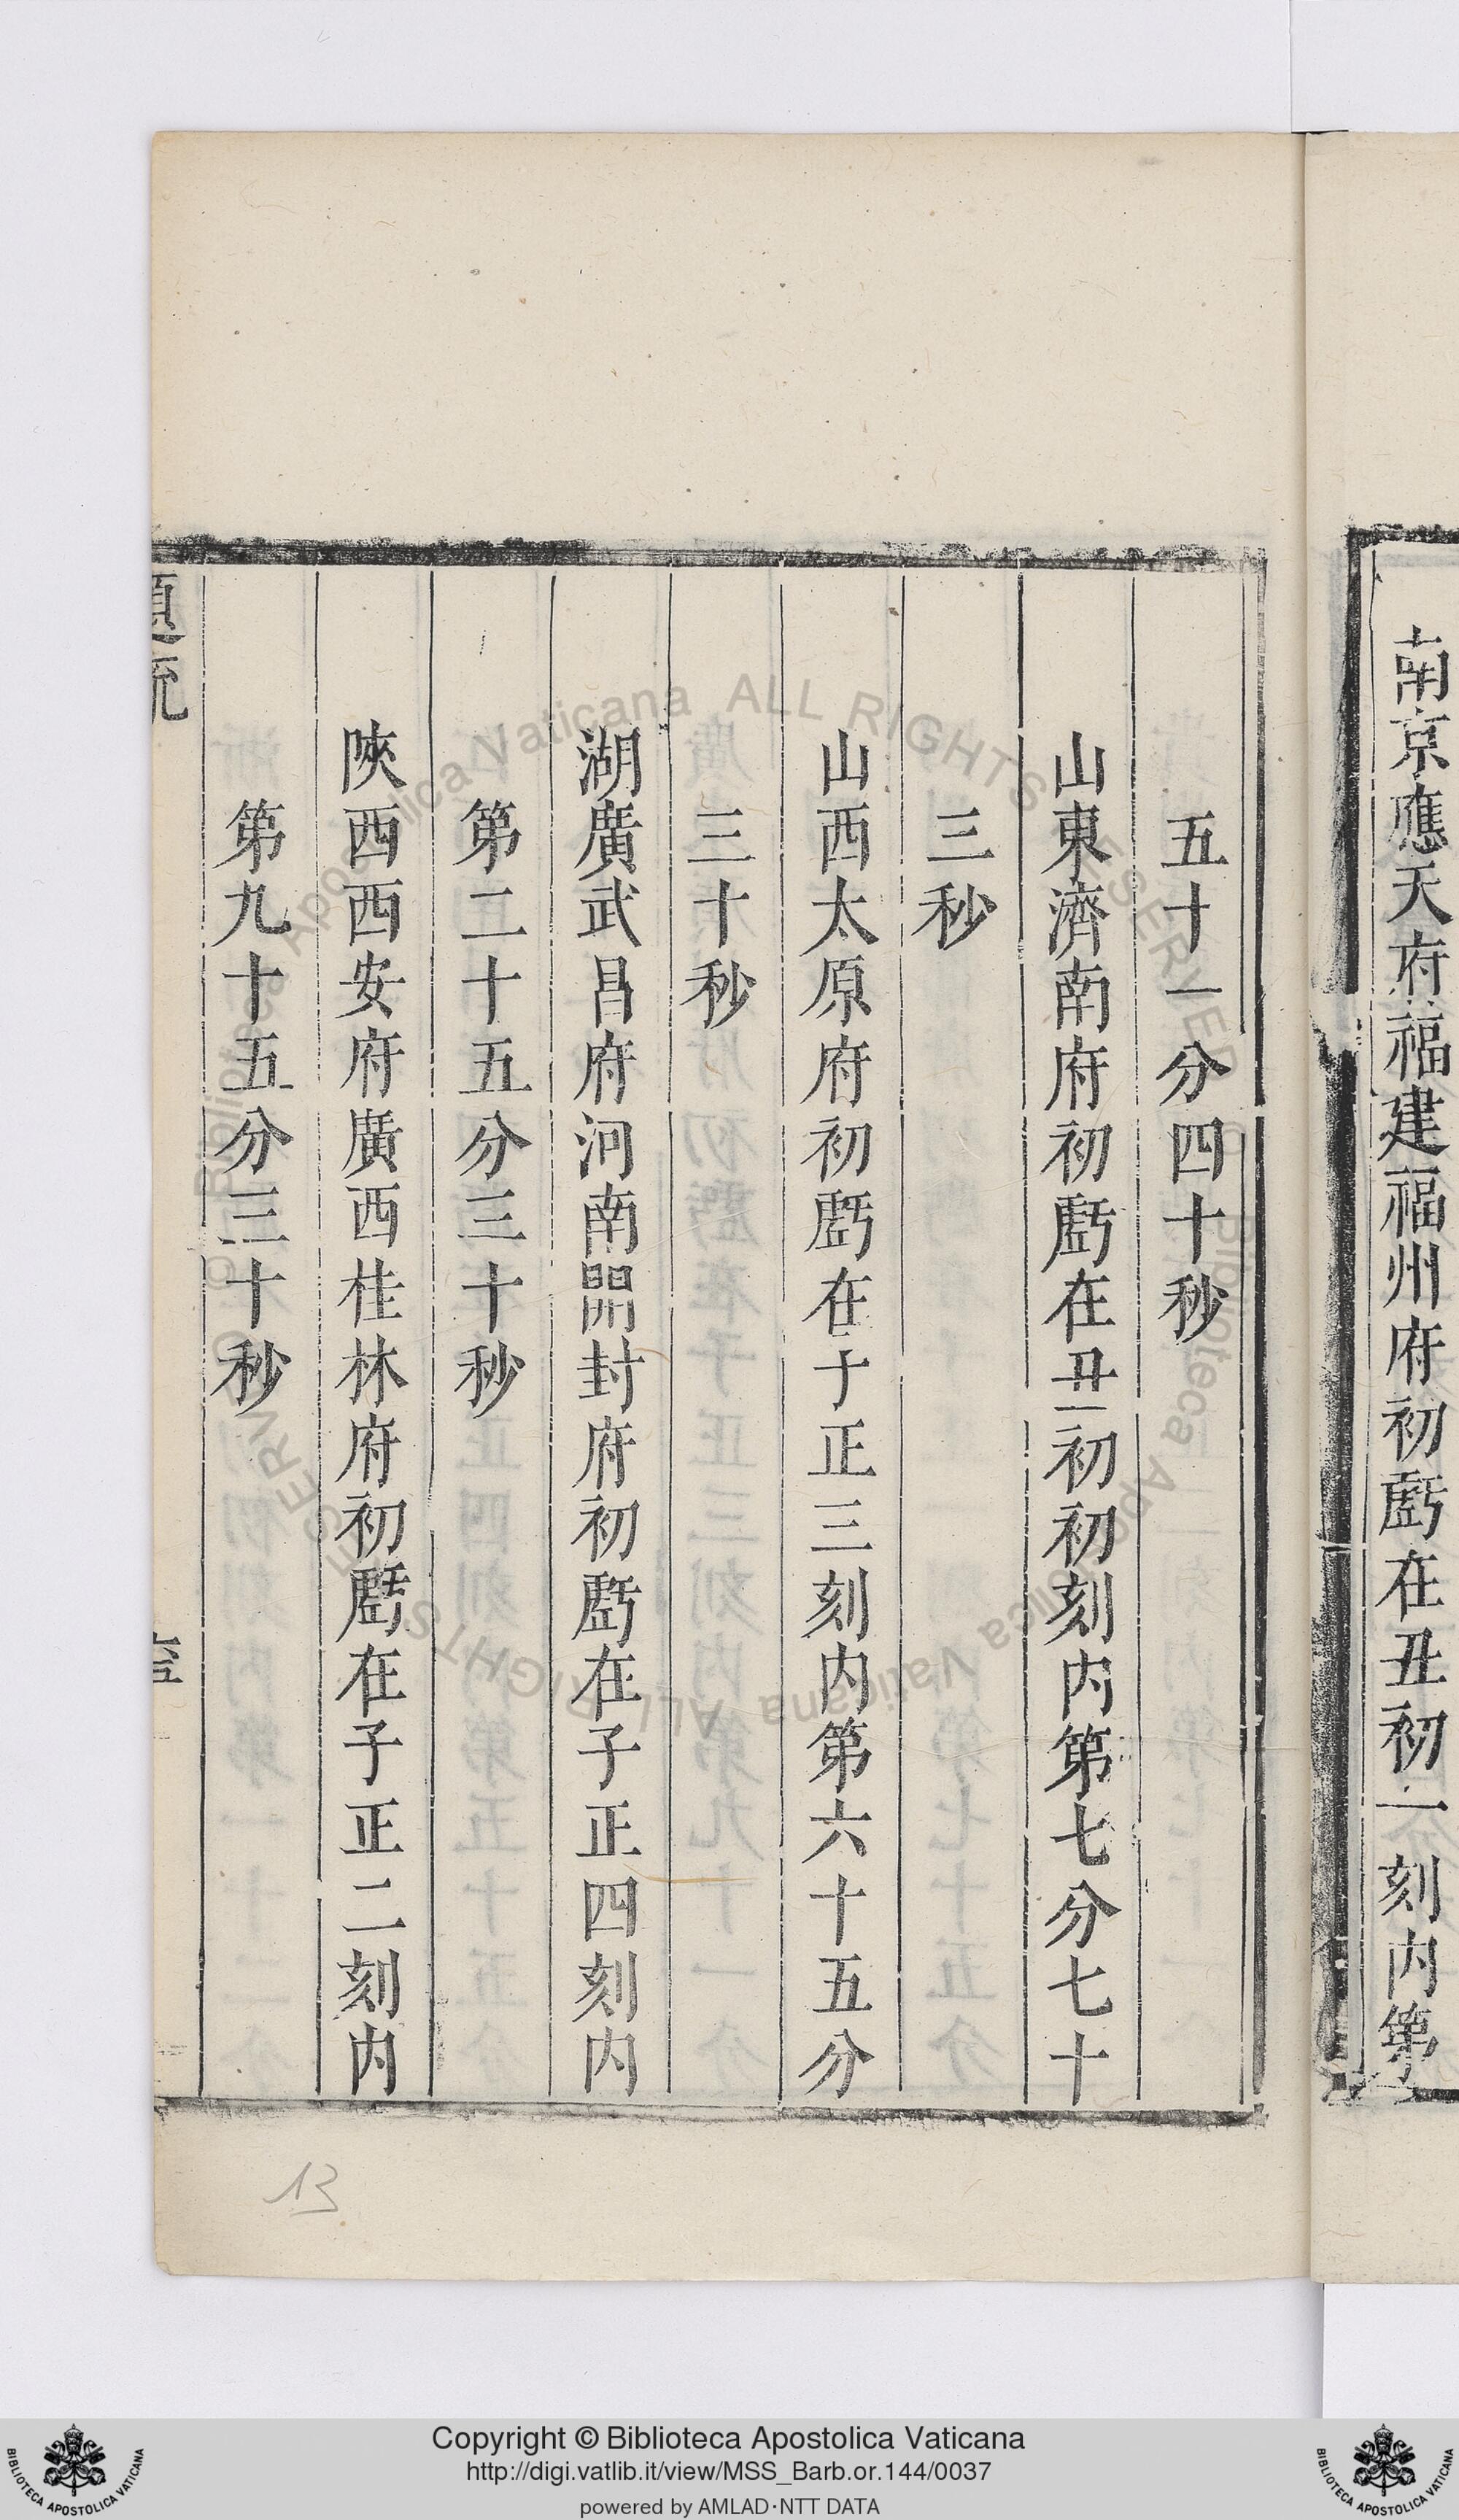 南京應天府福建福州府初虧在丑初一刻内第
五十一分四十秒
山東濟南府初虧在丑初初刻内第七分七十
三秒
山西太原府初虧在子正三刻内第六十五分
三十秒
湖廣武昌府河南開封府初虧在子正四刻内
第二十五分三十秒
陜西西安府廣西桂林府初虧在子正二刻内
第九十五分三十秒
13
Copyright © Biblioteca Apostolica Vaticana
http://digi.vatlib.it/view/MSS_Barb.or.144/0037
powered by AMLAD·NTT DATA